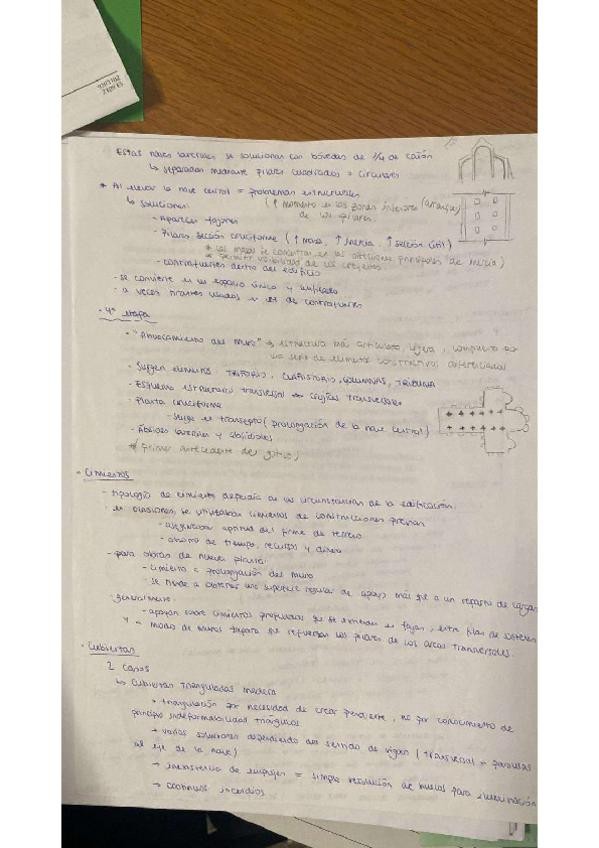 Estas naves laterales se solucionan con bóvedas de 1/4 de cañón
↳ separadas mediante pilares cuadrados o circulares
* Al elevar la nave central = problemas estructurales
↳ soluciones: (↑ momento en las zonas inferiores (arranque)
de los pilares.
- Aparecen fajones
- Pilares sección cruciforme (↑ masa, ↑ inercia, ↑ sección útil)
* las masas se concentran en las direcciones principales de inercia)
* permitir visibilidad de los creyentes.
- contrafuertes dentro del edificio
- se convierte en un espacio único y unificado
- a veces tirantes usados en vez de contrafuertes
- 4ª etapa
- "Ahuecamiento del muro" → estructura más articulada, ligera, compuesta por
una serie de elementos constructivos diferenciados
- Surgen elementos TRIFORIO, CLARISTORIO, COLUMNAS, TRIBUNA
- Esquema estructural transversal → crujías transversales
- Planta cruciforme
- Surge el transepto (prolongación de la nave central)
- Ábsides laterales y absidiolos
* (primer antecedente del gótico)
- Cimientos
- tipología de cimiento dependía de las circunstancias de la edificación.
- en ocasiones, se utilizaban cimientos de construcciones previas
- aseguraban aptitud del firme de terreno
- ahorro de tiempo, recursos y dinero
- para obras de nueva planta:
- cimiento = prolongación del muro
- se tiende a obtener una superficie regular de apoyo más que a un reparto de cargas
- generalmente:
- apoyan sobre cimientos profundos que se extienden en fajas, entre filas de
a modo de muros que refuerzan los pilares de los arcos transversales.
- Cubiertas
2 casos
↳ Cubiertas trianguladas madera
→ triangulación por necesidad de crear pendiente, no por conocimiento de
principio indeformabilidad triángulos
→ varias soluciones dependiendo del sentido de vigas (transversal o paralelas
al eje de la nave)
→ inexistencia de empujes = simple resolución de huecos para iluminación
→ continuos incendios